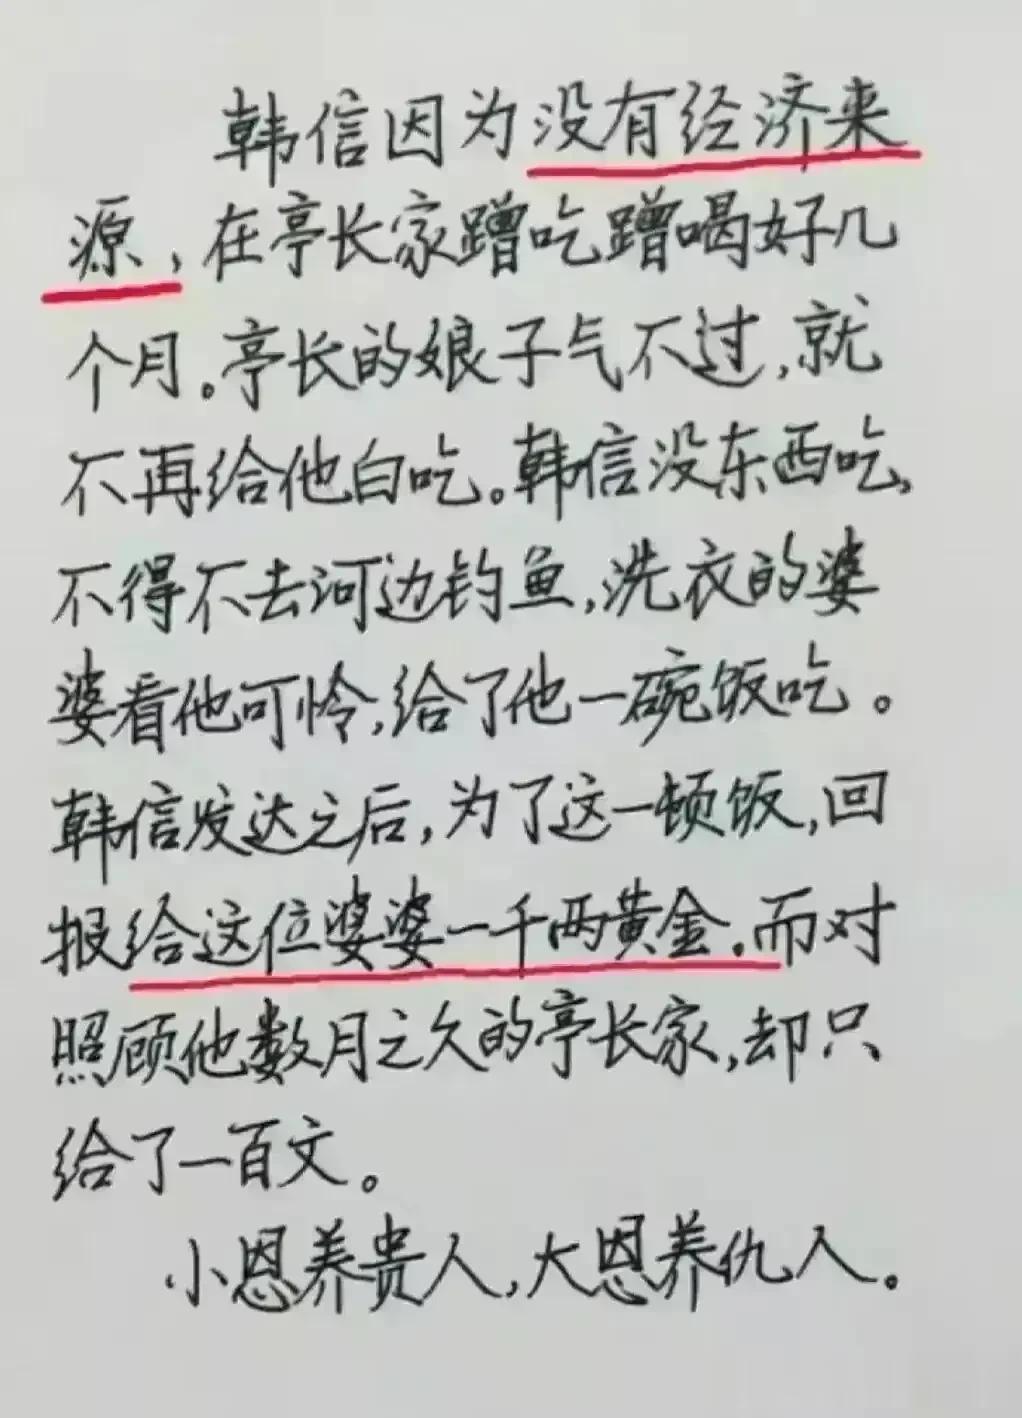 韩信因为没有经济来
源,在亭长家蹭吃蹭喝好几
个月。亭长的娘子气不过,就
不再给他白吃。韩信没东西吃,
不得不去河边钓鱼,洗衣的婆
婆看他可怜,给了他一碗饭吃。
韩信发达之后,为了这一顿饭,回
报给这位婆婆一千两黄金.而对
照顾他数月之久的亭长家,却只
给了一百文。
小恩养贵人,大恩养仇人。